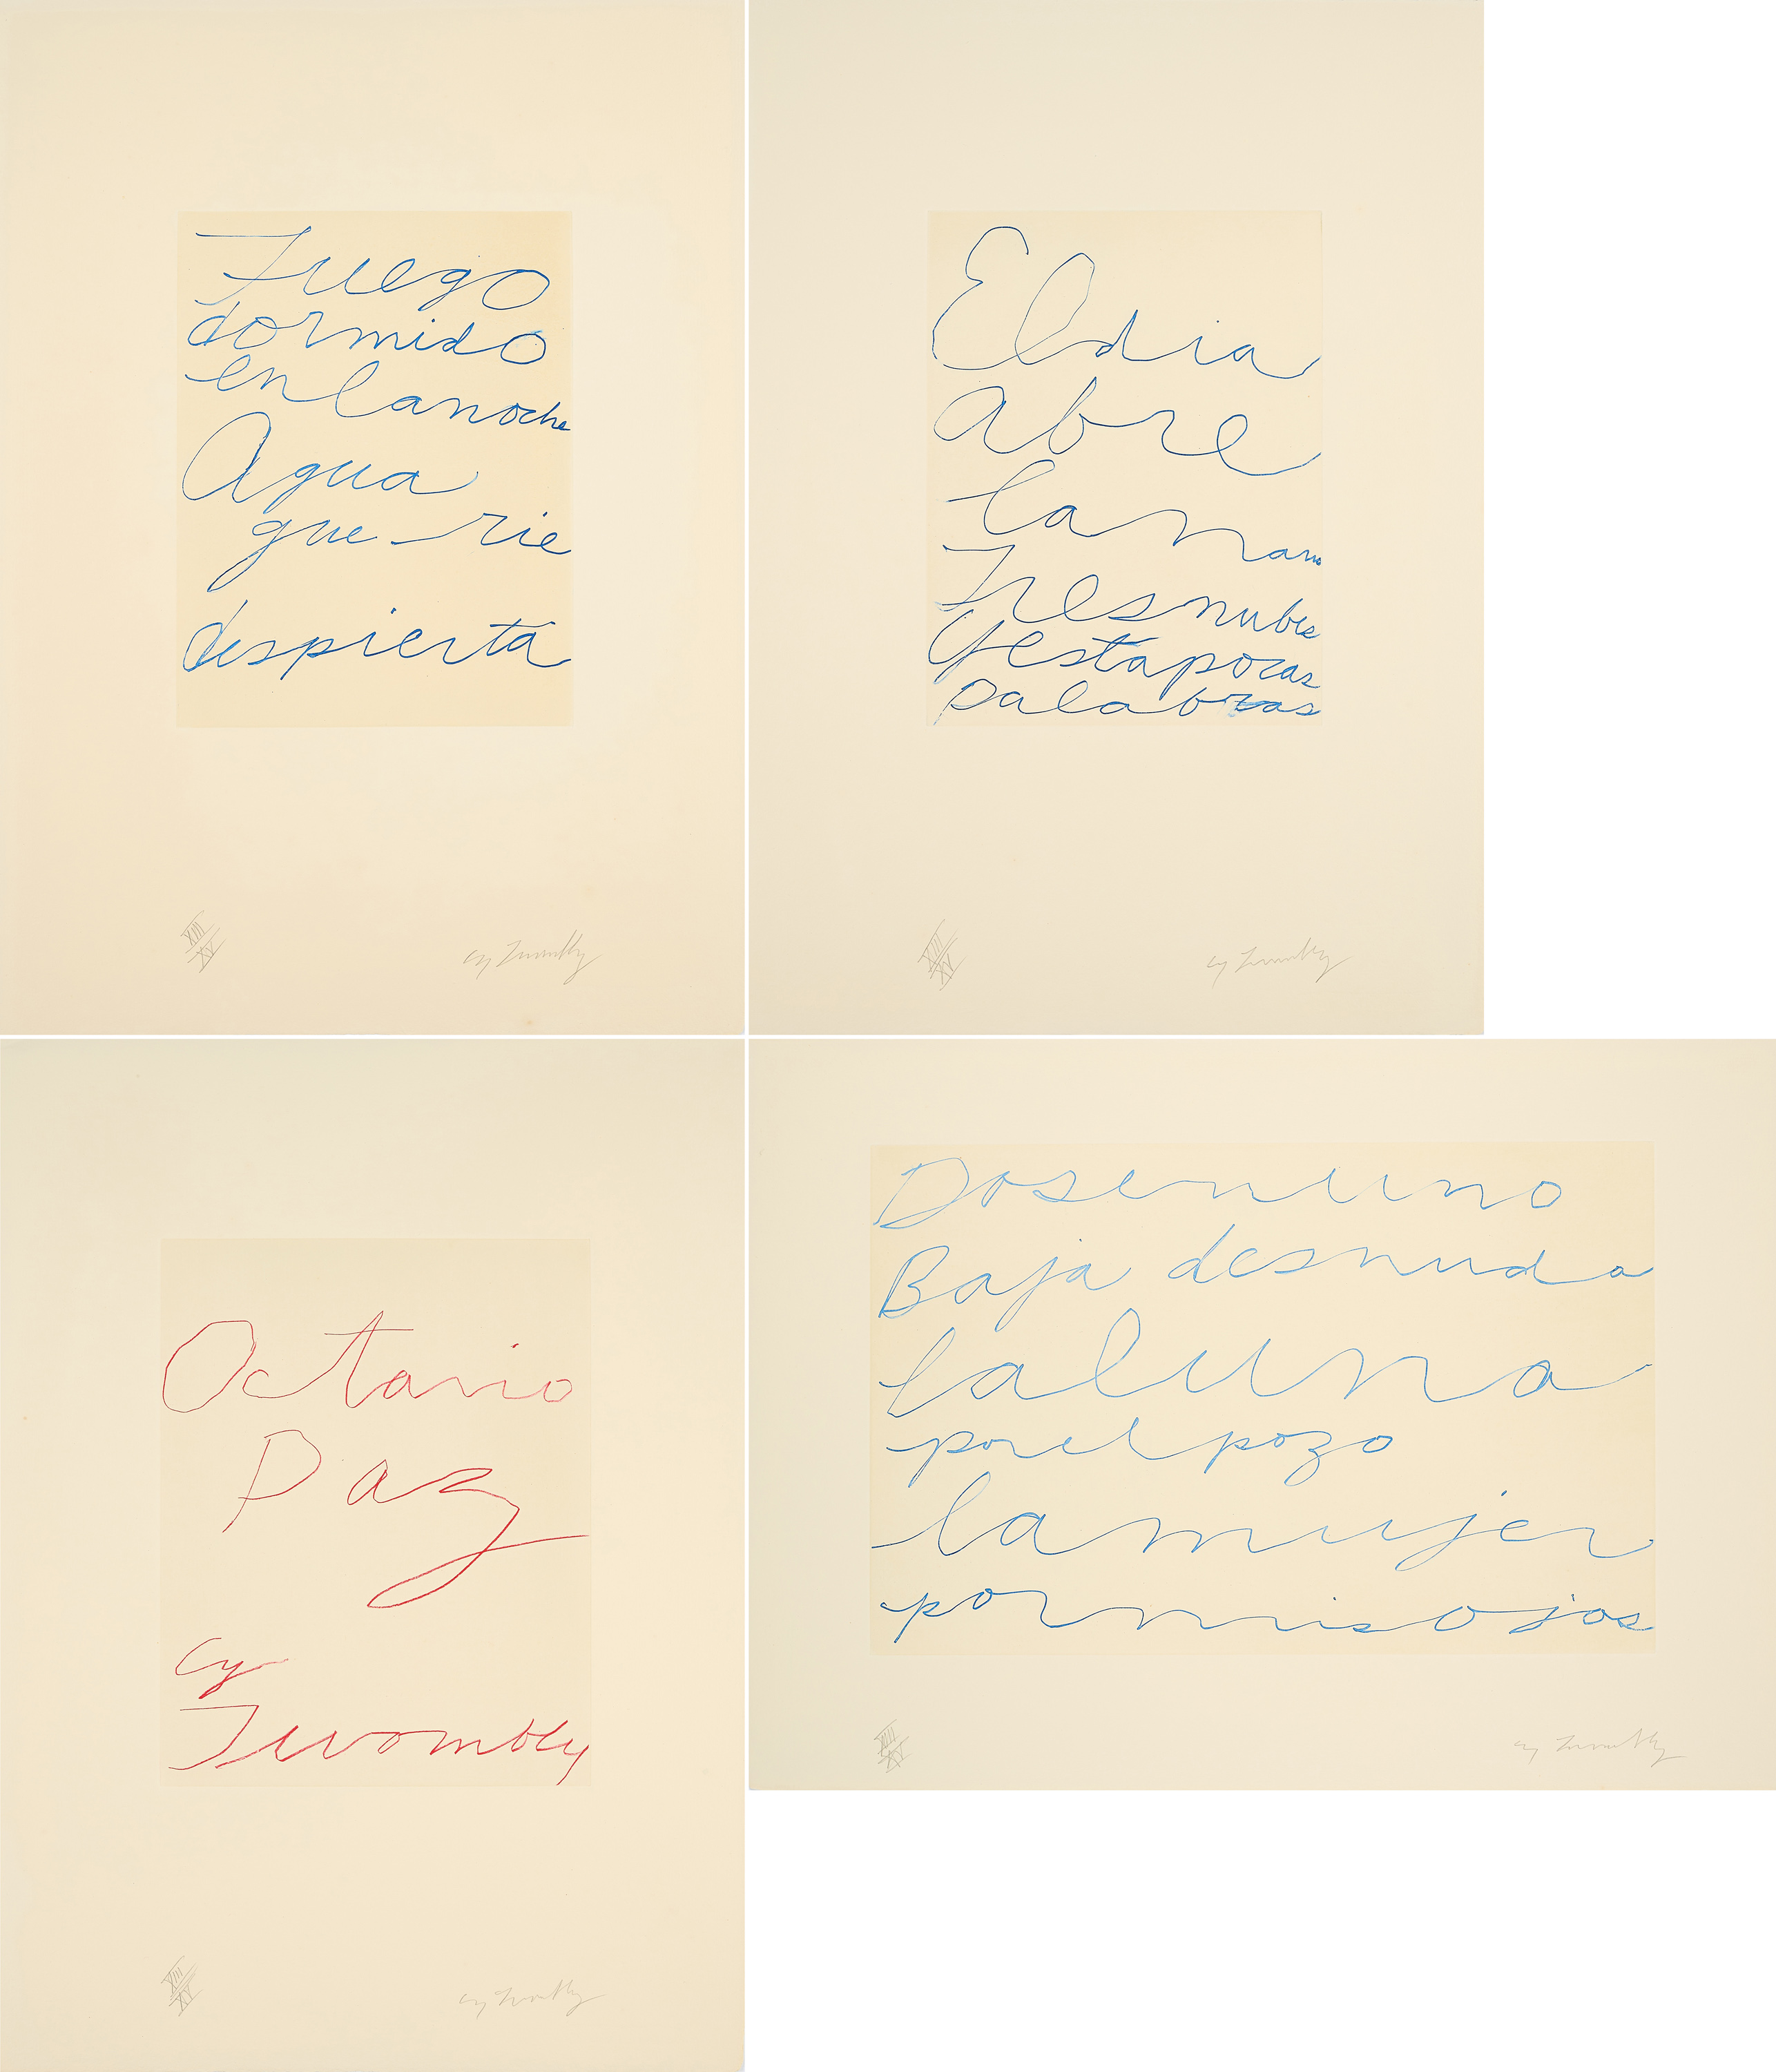 Fuego
dormido
en lanoche
Agua
que rie
despierta
XIII
XV
Cy Twombly
El dia
abre
la mano
Tres nubes
y estas pocas
palabras
XIII
XV
Cy Twombly
Octavio
Paz
Cy
Twombly
XIII
XV
Cy Twombly
Dos en uno
Baja desnuda
la luna
por el pozo
la mujer
por mis ojos
XIII
XV
Cy Twombly